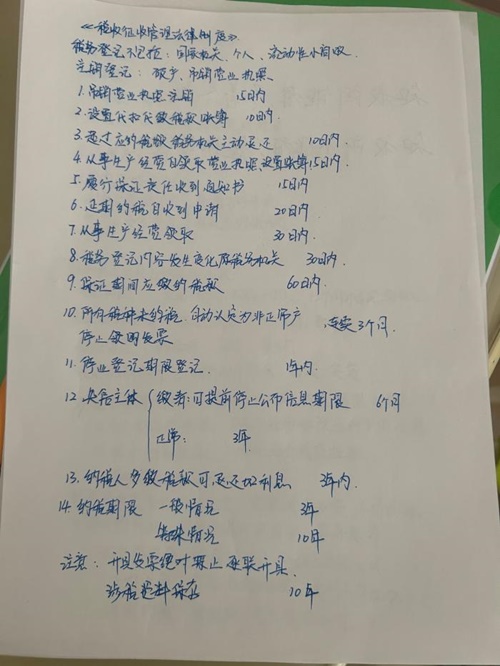 《税收征收管理法律制度》
税务登记不包括：国家机关、个人、流动性小商贩
注销登记：破产、吊销营业执照
1.吊销营业执照注销 15日内
2.设置代扣代缴税款账簿 10日内
3.超过应纳税额税务机关主动退还 10日内
4.从事生产经营自领取营业执照、设置账簿15日内
5.履行保证责任收到通知书 15日内
6.延期纳税自收到申请 20日内
7.从事生产经营领取 30日内
8.税务登记内容发生变化原税务机关 30日内
9.保证期间应缴纳税款 60日内
10.所有税种未纳税，自动认定为非正常户 连续3个月
停止领用发票
11.停业登记期限登记 1年内
12.失信主体 缴清:可提前停止公布信息期限 6个月
正常： 3年
13.纳税人多缴税款可退还加利息 3年内
14.纳税期限 一般情况 3年
特殊情况 10年
注意：开具发票 禁止 联开具
涉税资料保存 10年